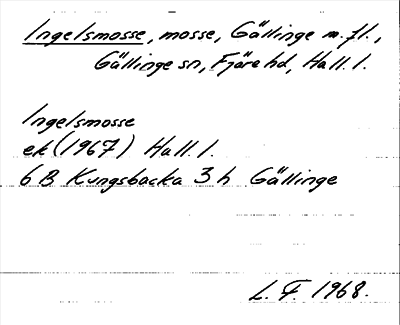 Ingelsmosse, mosse, Gällinge m.fl.,
Gällinge sn, Fjäre hd, Hall. l.
Ingelsmosse
ek (1967) Hall. l.
6 B Kungsbacka 3 h Gällinge
L. F. 1968.